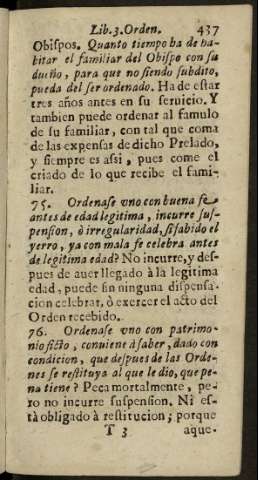 Lib. 3. Orden. 437
Obispos. Quanto tiempo ha de ha-
bitar el familiar del Obispo con su
dueño, para que no siendo subdito,
pueda del ser ordenado. Ha de estar
tres años antes en su seruicio. Y
tambien puede ordenar al famulo
de su familiar, con tal que coma
de las expensas de dicho Prelado,
y siempre es assi, pues come el
criado de lo que recibe el fami-
liar.
75. Ordenase vno con buena fe
antes de edad legitima, incurre sus-
pension, ò irregularidad, si sabido el
yerro, ya con mala fe celebra antes
de legitima edad? No incurre, y des-
pues de auer llegado à la legitima
edad, puede sin ninguna dispensa-
cion celebrar, ò exercer el acto del
Orden recebido.
76. Ordenase vno con patrimo-
nio ficto, conuiene à saber, dado con
condicion, que despues de las Orde-
nes se restituya al que le dio, que pe-
na tiene? Peca mortalmente, pe-
ro no incurre suspension. Ni es-
tà obligado à restitucion; porque
T 3 aque-